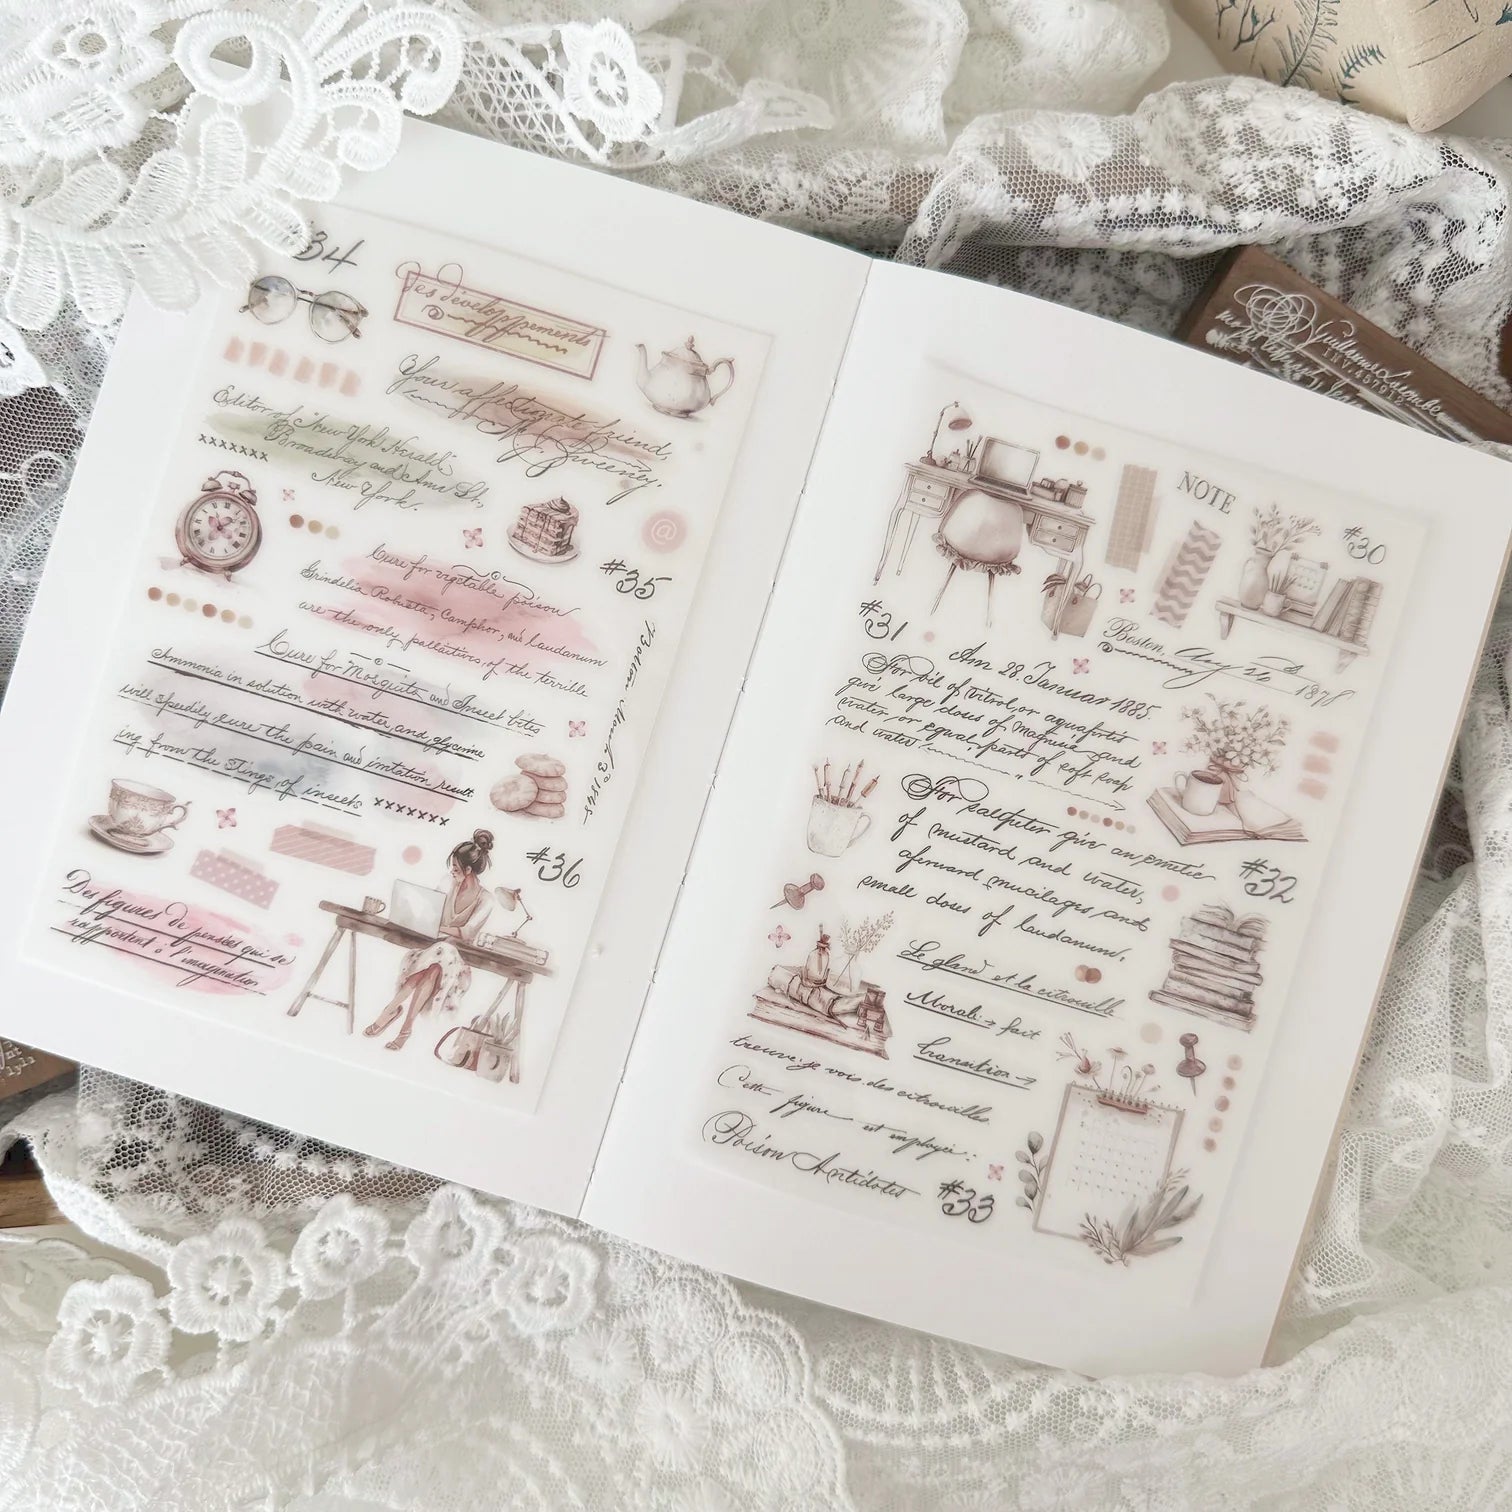 #34
Des développements
Your affectionate friend,
M. J. Sweeney.
Editor of "New York Herald"
Broadway and Ann St,
New York.
xxxxxxx
@
#35
Cure for vegetable poison
Grindelia Robusta, Camphor, and laudanum
are the only palliatives of the terrible
Cure for Mosquito and Insect bites
Ammonia in solution with water and glycerine
will speedily cure the pain and irritation result
ing from the stings of insects xxxxxxx
Boston March 3 1878
#36
Des figures de pensées qui se
rapportent à l'imagination
NOTE
#30
Boston,
1878
#31
Am 28. Januar 1885.
For oil of vitrol, or aquafortis
give large doses of magnesia and
water or equal parts of soft soap
and water
For saltpeter give an emetic
of mustard and water,
afterward mucilages and
small doses of laudanum.
#32
Le gland et la citrouille
Morale → fait
transition →
treuve-je vois des citrouilles
Cette figure est employée:
Poison Antidotes
#33
INV.